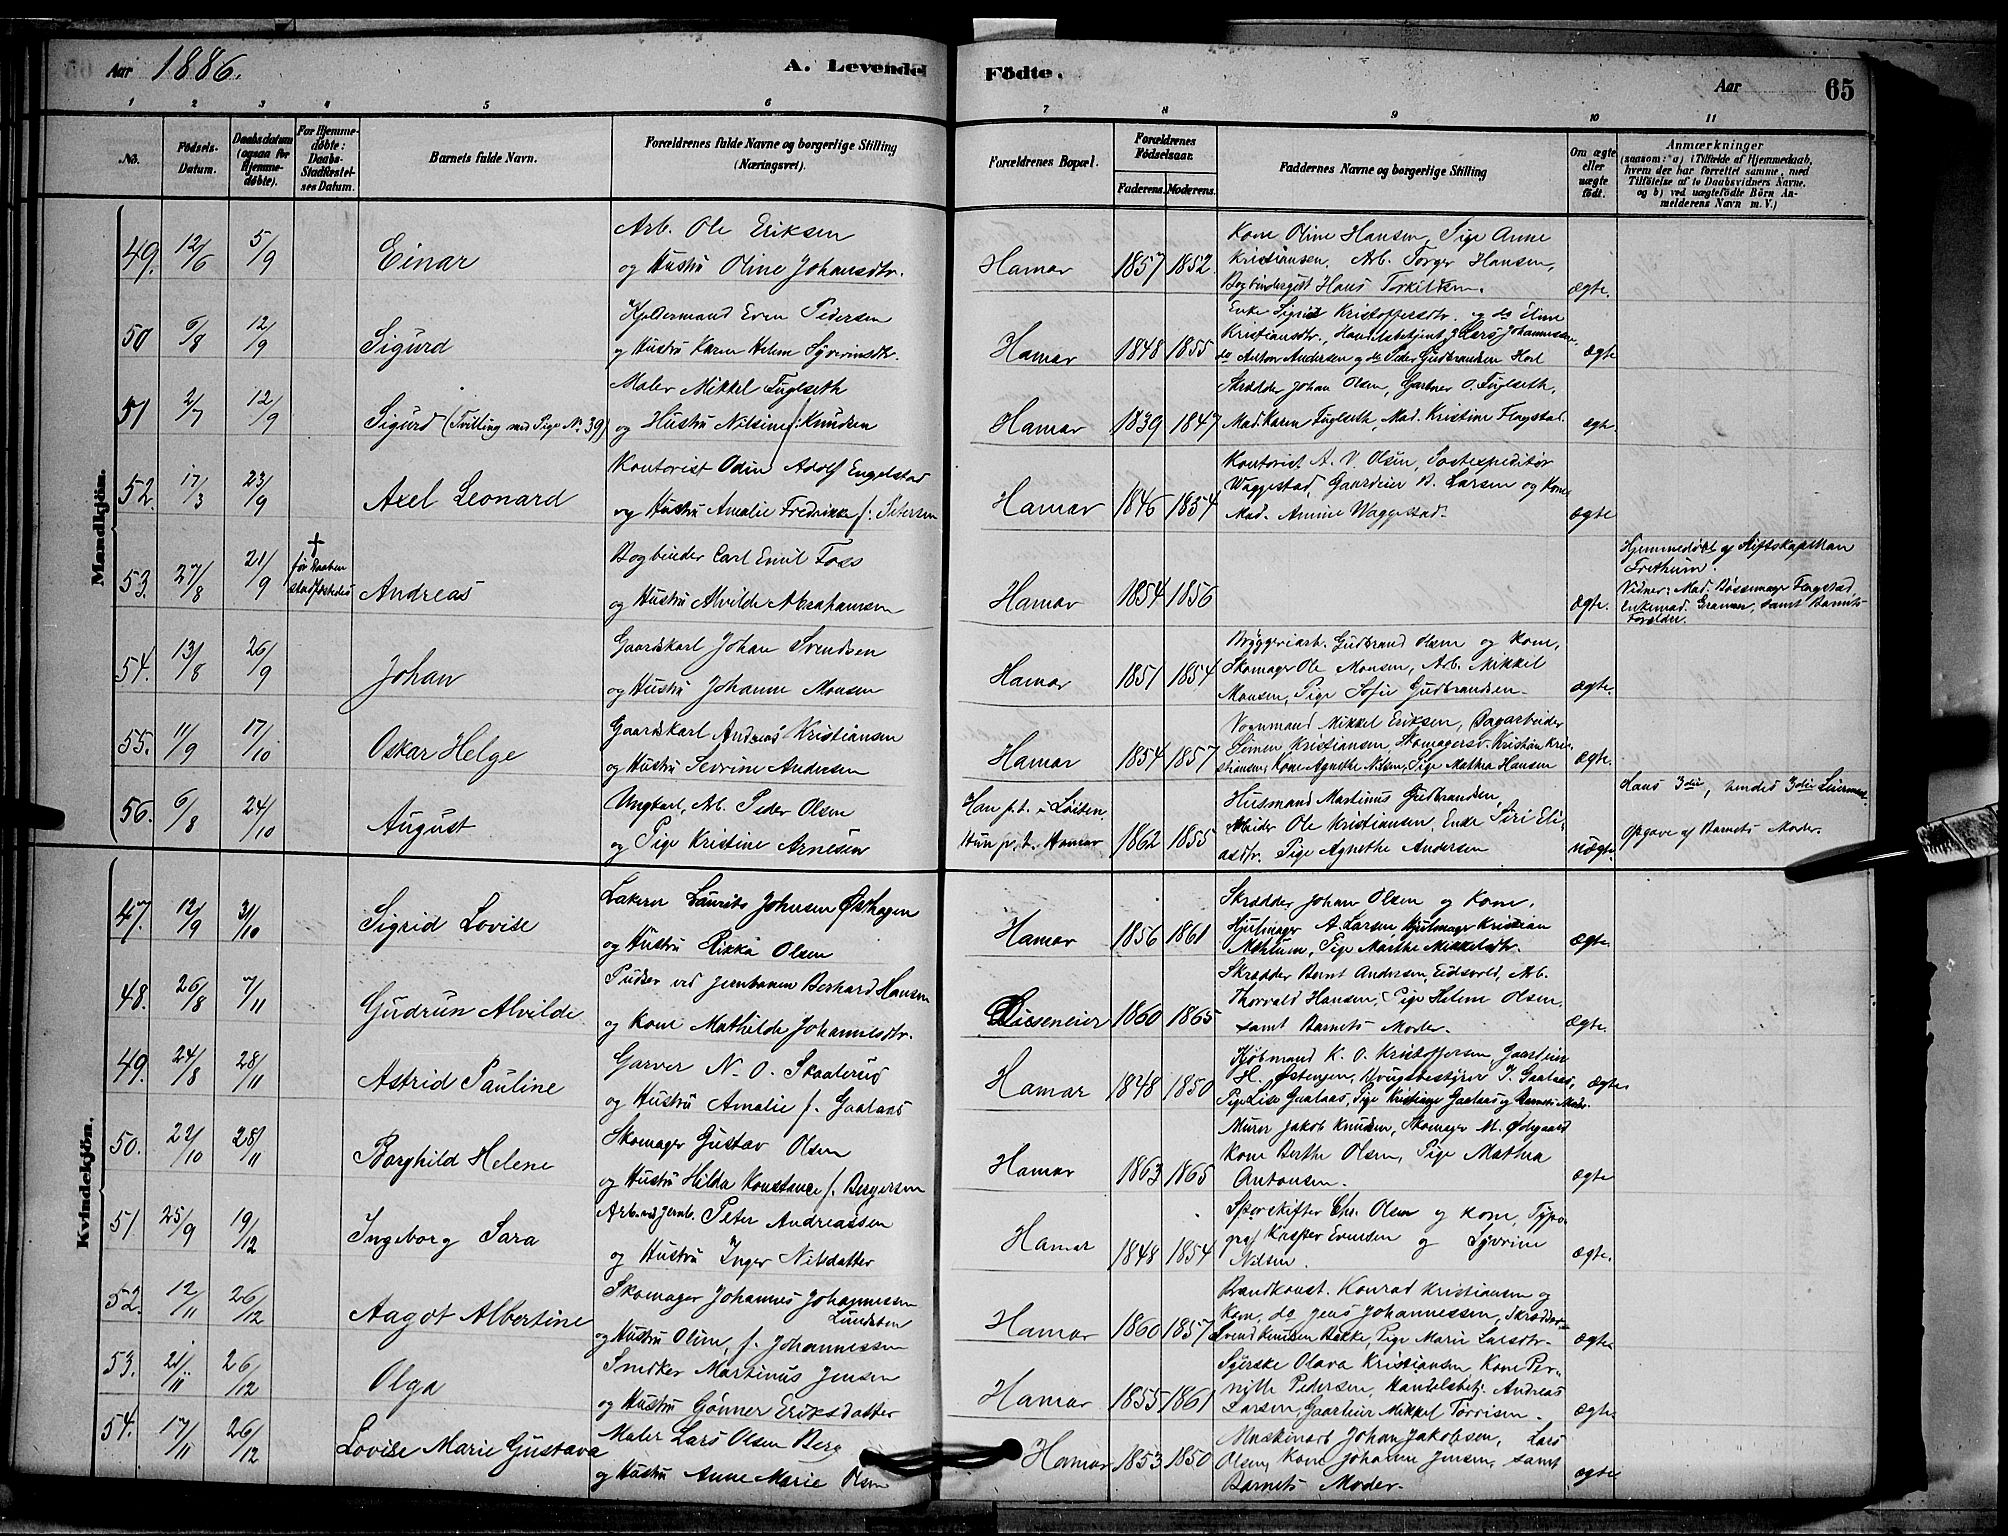 Aar 1886.
A. Levende
Födte.
Aar
65
1 2 3 4 5 6 7 8 9 10 11
No.
Födsels-
Datum.
Daabsdatum
(ogsaa for
Hjemme-
døbte).
For Hjemme-
døbte:
Daabs-
Stadfæstel-
ses Datum.
Barnets fulde Navn.
Forældrenes fulde Navne og borgerlige Stilling
(Næringsvei).
Forældrenes Bopæl.
Forældrenes
Födselsaar.
Faderens. Moderens.
Faddernes Navne og borgerlige Stilling
Om ægte
eller
uægte
født.
Anmærkninger
(saasom: a) i Tilfælde af Hjemmedaab,
hvem der har forrettet samme, med
Tilföielse af to Daabsvidners Navne,
og b) ved uægtefödte Börn An-
melderens Navn m. V.)
Mandkjön.
49. 12/6 5/9
Einar
Arb. Ole Eriksen
og Hustru Oline Johansdtr.
Hamar 1857 1852.
Kone Oline Hansen, Pige Anne
Kristiansen, Arb. Torger Hansen,
Bogbindersvd. Hans Torkildsen.
ægte.
50 6/8 12/9
Sigurd
Kjeldermand Even Pedersen
og Hustru Karen Helene Syverinsdtr.
Hamar 1848 1855
Enke Sigrid Kristoffersdtr. og do Eline
Kristiansdtr., Handelsbetjent Lars Johannessen,
do Anton Andersen og do Peder Gudbrandsen Hoel
ægte
51 2/7 12/9
Sigurd (Tvilling med Pige No. 39)
Maler Mikkel Fuglseth
og Hustru Nilsine f. Knudsen
Hamar 1839 1847
Skrædder Johan Olsen, Gartner O. Fuglseth,
Mad. Karen Fuglseth, Mad. Kristine Flagstad.
ægte
52. 17/3 23/9
Axel Leonard
Kontorist Odin Adolf Engelstad
og Hustru Amalie Fredrikke f. Petersen
Hamar 1846 1854
Kontorist A. V. Olsen, Postexpeditör
Waggestad, Gaardeier B. Larsen og Kone
Mad. Amine Waggestad.
ægte
53. 27/8 21/9
†
før Daaben
stadfæstedes
Andreas
Bogbinder Carl Emil Foss
og Hustru Alvilde Abrahamsen
Hamar 1854 1856
ægte.
Hjemmedöbt af Stiftskapellan
Frethum.
Vidner: Mad. Bössemager Flagstad,
Enkemad. Gramen, samt Barnets
Forældre.
54. 13/8 26/9
Johan
Gaardskarl Johan Svendsen
og Hustru Johanne Monsen
Hamar 1851 1854
Bryggeriarb. Gudbrand Olsen og Kone,
Skomager Ole Monsen, Arb. Mikkel
Monsen, Pige Sofie Gudbrandsen.
ægte.
55. 11/9 17/10
Oskar Helge
Gaardskarl Andreas Kristiansen
og Hustru Sevrine Andersen
Hamar 1854 1857
Vognmand Mikkel Eriksen, Dagarbeider
Simen Kristiansen, Skomagersv. Kristian Kri-
stiansen, Kone Agnethe Nilsen, Pige Mathea Hansen
ægte.
56. 6/8 24/10
August
Ungkarl, Arb. Peder Olsen
og Pige Kristine Arnesen
Han p. t. i Löiten
Hun p. t. Hamar 1862 1855
Husmand Martinus Gudbrandsen,
Arbeider Ole Kristiansen, Enke Siri Eli-
asdtr. Pige Agnethe Andersen
uægte.
Hans 3die, hendes 3die Leiermaal.
Opgave af Barnets Moder.
Kvindekjön.
47. 12/9 31/10
Sigrid Lovise
Lakerer Laurits Johnsen Østhagen
og Hustru Rikka Olsen
Hamar 1856 1861
Skrædder Johan Olsen og Kone,
Hjulmager A. Larsen, Hjulmager Kristian
Mohtum, Pige Marthe Mikkelsdtr.
ægte.
48. 26/8 7/11
Gudrun Alvilde
Pudser ved Jernbanen Berhard Hansen
og Kone Mathilde Johannesdtr.
Disseneier 1860 1865
Skrædder Bernt Andersen, Eidsvold, Arb.
Thorvald Hansen, Pige Helene Olsen,
samt Barnets Moder.
ægte.
49. 24/8 28/11
Astrid Pauline
Garver N. O. Skaalerud
og Hustru Amalie f. Gaalaas
Hamar 1848 1850
Kjöbmand K. O. Kristoffersen, Gaardeier
H. Østengen, Brugsbestyrer J. Gaalaas,
Pige Lise Gaalaas, Pige Kristiane Gaalaas og Barnets Moder.
ægte.
50. 22/10 28/11
Borghild Helene
Skomager Gustav Olsen
og Hustru Hilda Konstance f. Bergersen
Hamar 1863 1865
Murer Jakob Knudsen, Skomager M. Ødegaard
Kone Berthe Olsen, Pige Mathea
Antonsen.
ægte
51. 25/9 19/12
Ingeborg Sara
Arb. ved Jernb. Peter Andreassen
og Hustru Inger Nilsdatter
Hamar 1848 1854
Sporskifter Chr. Olsen og Kone, Typo-
graf Krister Evensen og Syvrine
Nilsen.
ægte.
52. 12/11 26/12
Aagot Albertine
Skomager Johannes Johannessen
Lundsben
og Hustru Oline, f. Johannessen
Hamar 1860 1857
Brandkonst. Konrad Kristiansen og
Kone, do Jens Johannessen, Skrædder
Svend Knudsen Bakke, Pige Marie Larsdtr.
ægte
53. 21/11 26/12
Olga
Snedker Martinus Jensen
og Hustru Gönner Eriksdatter
Hamar 1855 1861
Syerske Olava Kristiansen, Kone Per-
nille Pedersen, Handelsbetj. Andreas
Larsen, Gaardeier Mikkel Torrisen.
ægte.
54. 17/11 26/12
Lovise Marie Gustava
Maler Lars Olsen Berg
og Hustru Anne Marie Olsen
Hamar 1853 1850
Maskinarb. Johan Jakobsen, Lars
Olsen, Kone Johanne Jensen, samt
Barnets Moder.
ægte